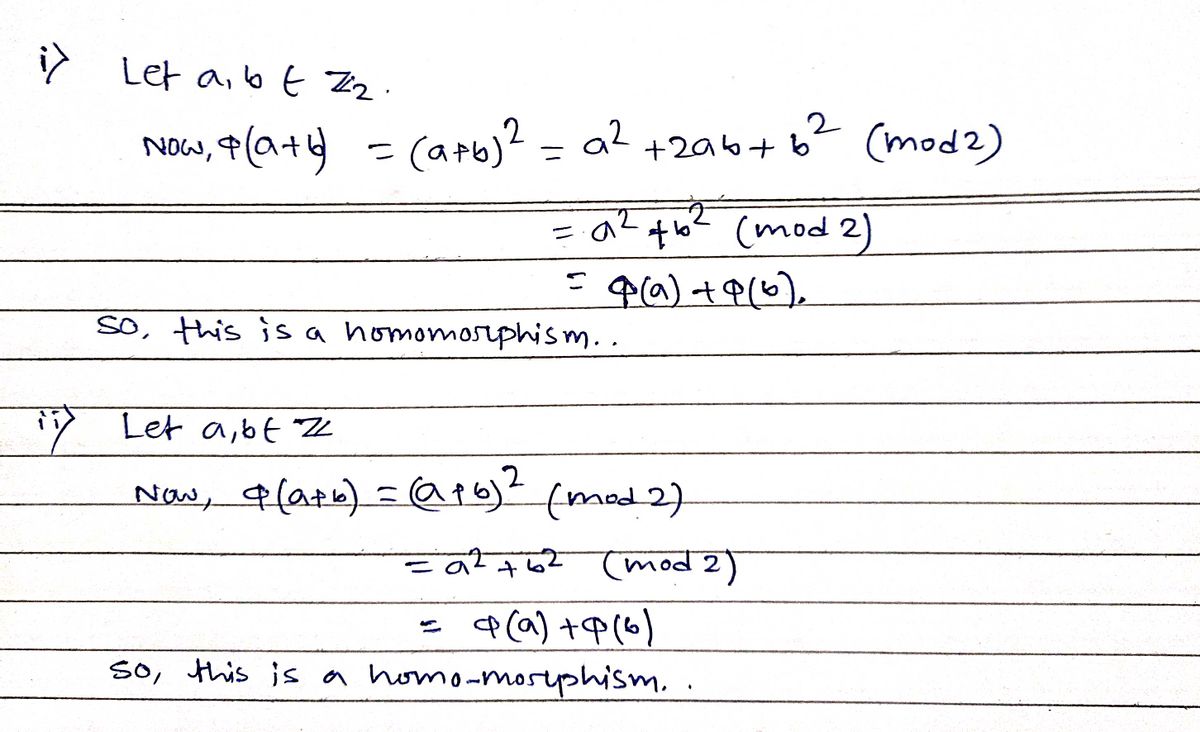 i) Let a, b ∈ ℤ₂.
Now, φ(a+b) = (a+b)² = a² + 2ab + b² (mod 2)
= a² + b² (mod 2)
= φ(a) + φ(b).
So, this is a homomorphism..
ii) Let a, b ∈ ℤ
Now, φ(a+b) = (a+b)² (mod 2)
= a² + b² (mod 2)
= φ(a) + φ(b)
So, this is a homo-morphism. .